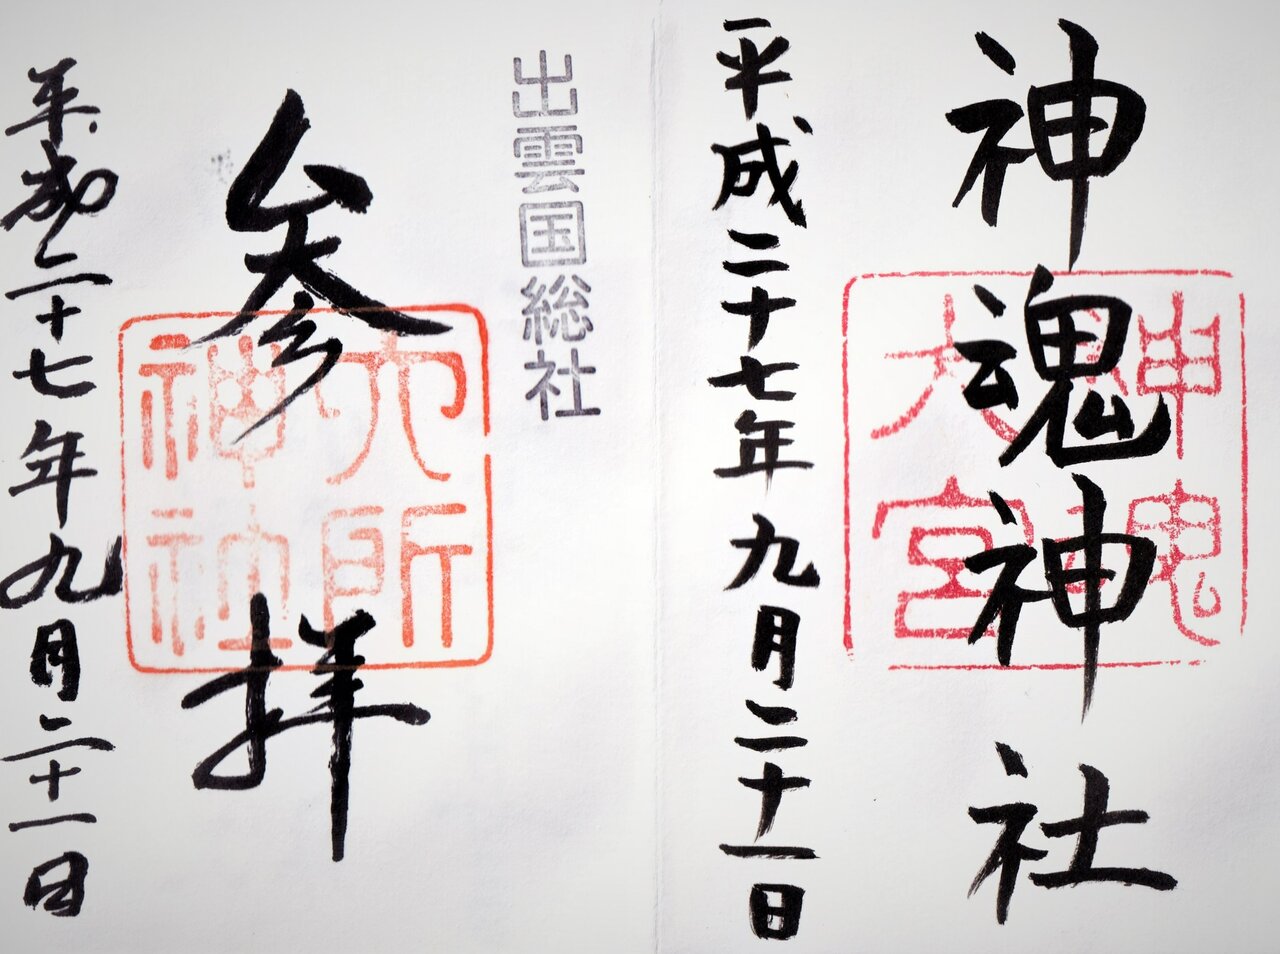 神魂神社
神魂
大宮
平成二十七年九月二十一日
出雲国総社
参拝
六所
神社
平成二十七年九月二十一日